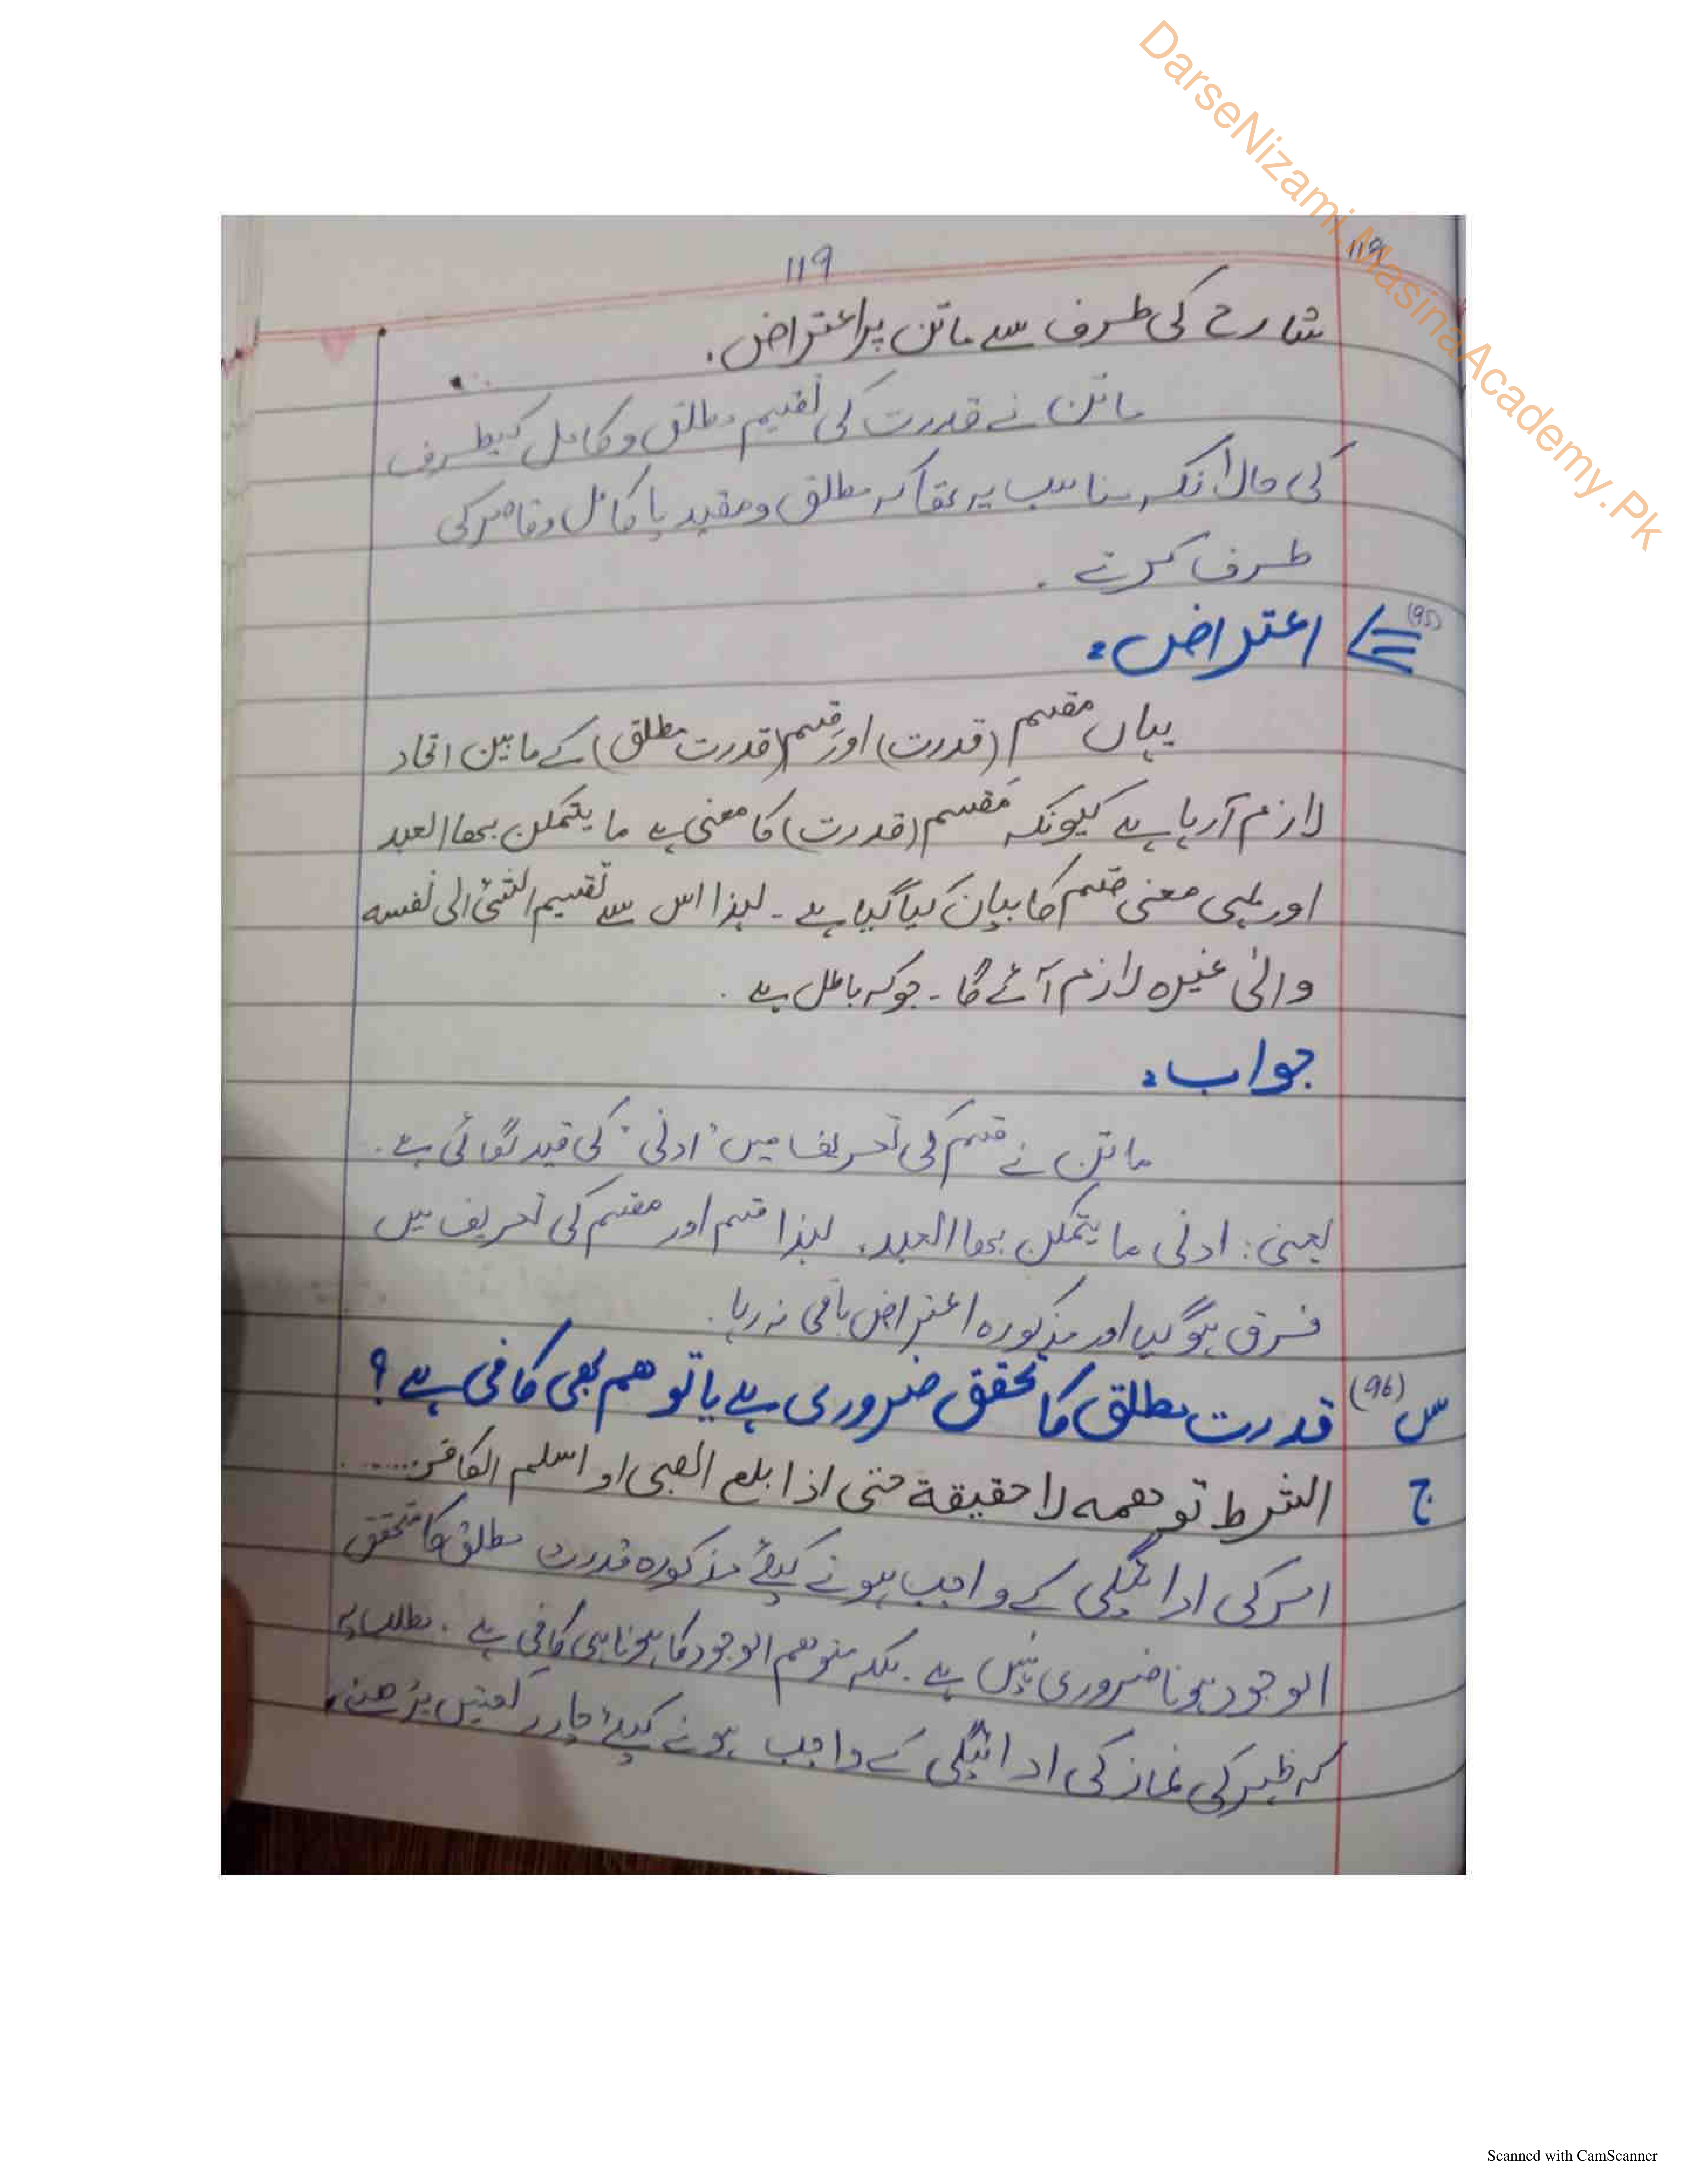 DarseNizami.MasinaAcademy.Pk
119
119
شارح کی طرف سے ماتن پر اعتراض.
ماتن نے قدرت کی تقسیم مطلق و کامل کیطرف
کی حالانکہ مناسب یہ تھا کہ مطلق و مقید یا کامل و قاصر کی
طرف کرتے .
(95)
اعتراض:
یہاں مقسم (قدرت) اور قسم (قدرت مطلق) کے مابین اتحاد
لازم آرہا ہے کیونکہ مَقسم (قدرت) کا معنی ہے ما یتمکن بھا العبد
اور یہی معنی قسم کا بیان کیا گیا ہے ۔ لہذا اس سے تقسیم الشئ الی نفسہ
والی غیرہ لازم آئے گا ۔ جو کہ باطل ہے .
جواب:
ماتن نے قسم کی تعریف میں "ادنی" کی قید لگائی ہے .
یعنی: ادنی ما یتمکن بھا العبد. لہذا قسم اور مقسم کی تعریف میں
فرق ہوگیا اور مذکورہ اعتراض باقی نہ رہا .
س (96) قدرت مطلق کا تحقق ضروری ہے یا توھم بھی کافی ہے ؟
ج الشرط توھمہ لا حقیقة حتی اذا بلغ الصبی او اسلم الکافر......
اس کی ادائیگی کے واجب ہونے کیلئے مذکورہ قدرت مطلق کا متحقق
الوجود ہونا ضروری نہیں ہے . بلکہ متوھم الوجود کا ہونا ہی کافی ہے . مطلب یہ
کہ ظہر کی نماز کی ادائیگی کے واجب ہونے کیلئے چار رکعتیں پڑھنے
Scanned with CamScanner